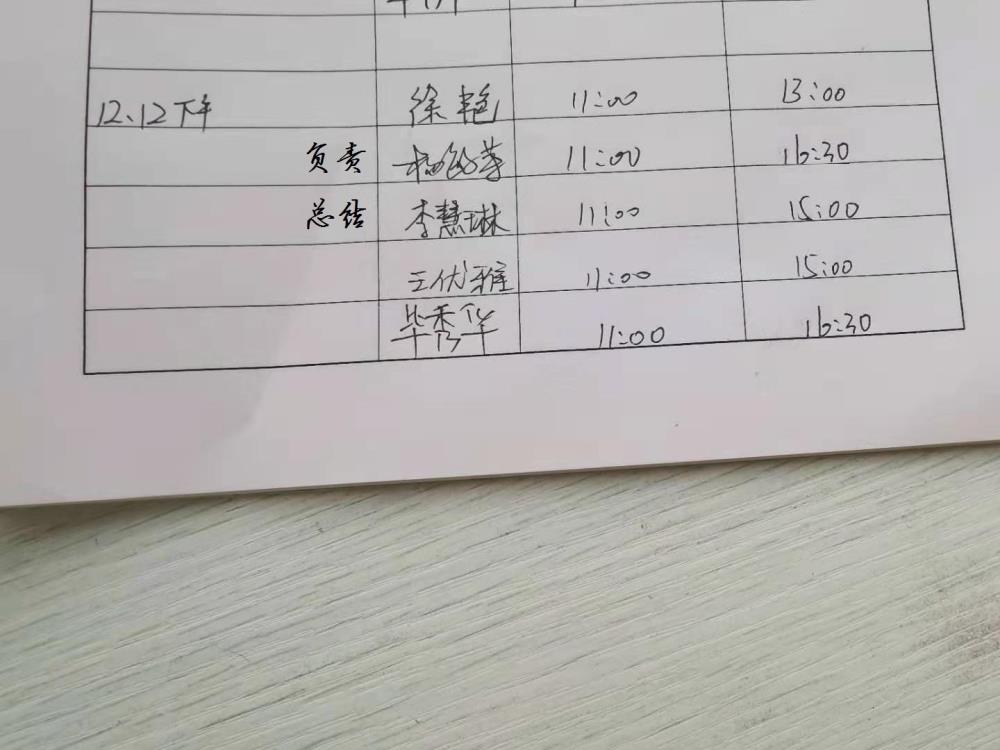 12.12下午 徐艳 11:00 13:00
负责 11:00 16:30
总结 李慧琳 11:00 15:00
王优雅 11:00 15:00
毕秀华 11:00 16:30